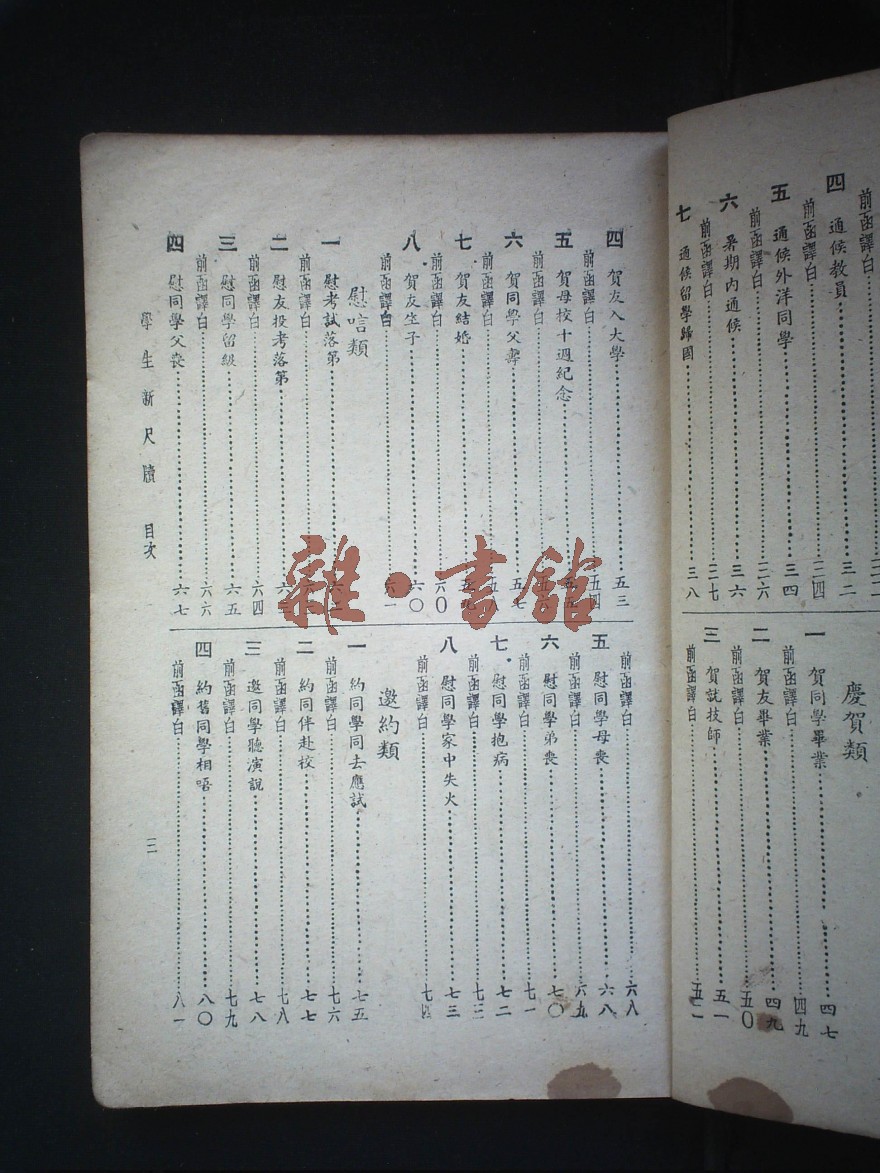 前函譯白
四 通候教員……三二
前函譯白……
五 通候外洋同學……三四
前函譯白……
六 暑期內通候……三六
前函譯白……三七
七 通候留學歸國……三八
慶賀類
一 賀同學畢業……四七
前函譯白……四九
二 賀友畢業……四九
前函譯白……五〇
三 賀試技師……五一
前函譯白……五二
四 賀友入大學……五三
前函譯白……五四
五 賀母校十週紀念……
前函譯白……
六 賀同學父壽……五七
前函譯白……五八
七 賀友結婚……五九
前函譯白……六〇
八 賀友生子……六〇
前函譯白……六一
慰唁類
一 慰考試落第……
前函譯白……
二 慰友投考落第……
前函譯白……六四
三 慰同學留級……六五
前函譯白……六六
四 慰同學父喪……六七
前函譯白……六八
五 慰同學母喪……六八
前函譯白……六九
六 慰同學弟喪……七〇
前函譯白……七一
七 慰同學抱病……七二
前函譯白……七三
八 慰同學家中失火……七三
前函譯白……七四
邀約類
一 約同學同去應試……七五
前函譯白……七六
二 約同伴赴校……七七
前函譯白……七八
三 邀同學聽演說……七八
前函譯白……七九
四 約舊同學相晤……八〇
前函譯白……八一
學生新尺牘 目次
三
雜·書館